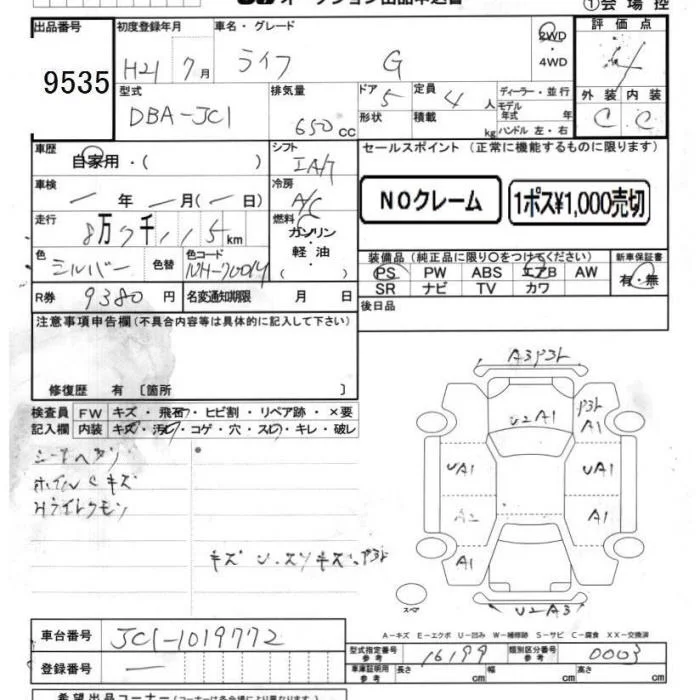 オークション出品申込書
①会場控
出品番号 初度登録年月 車名・グレード 評価点
9535 H21 7月 ライフ G 2WD ・4WD 4
型式 排気量 ドア 定員 ディーラー・並行 外装 内装
DBA-JC1 650cc 5 4人 モデル年式 年 C C
形状 積載 kg ハンドル 左・右
車歴 シフト セールスポイント(正常に機能するものに限ります)
自家用・( ) IA/T
車検 冷房 NOクレーム 1ポス¥1,000売切
年 月( 日) A/C
走行 燃料
8万7千115km ガソリン
軽油
( )
色 色替 色コード 装備品(純正品に限り○をつけてください) 新車保証書
シルバー NH-700M PS PW ABS エアB AW 有・無
SR ナビ TV カワ
R券 9380円 名変通知期限 月 日 後日品
注意事項申告欄(不具合内容等は具体的に記入して下さい)
修復歴 有 〔箇所 〕
検査員 FW キズ・飛石・ヒビ割・リペア跡・×要
記入欄 内装 キズ・汚レ・コゲ・穴・スレ・キレ・破レ
シートヘタリ
ホイルCキズ
Hライトクモリ
A3P3ト
U2A1
P3ト
A1
UA1
UA1
A1
A1
U2A3
スペア
A-キズ E-エクボ U-凹み W-補修跡 S-サビ C-腐食 XX-交換済
車台番号 JC1-1019772
型式指定番号 参考 16199 類別区分番号 参考 0003
登録番号 —
車庫証明用 参考 長さ cm 幅 cm 高さ cm
希望出品コーナー(コーナーは各会場により異なります)